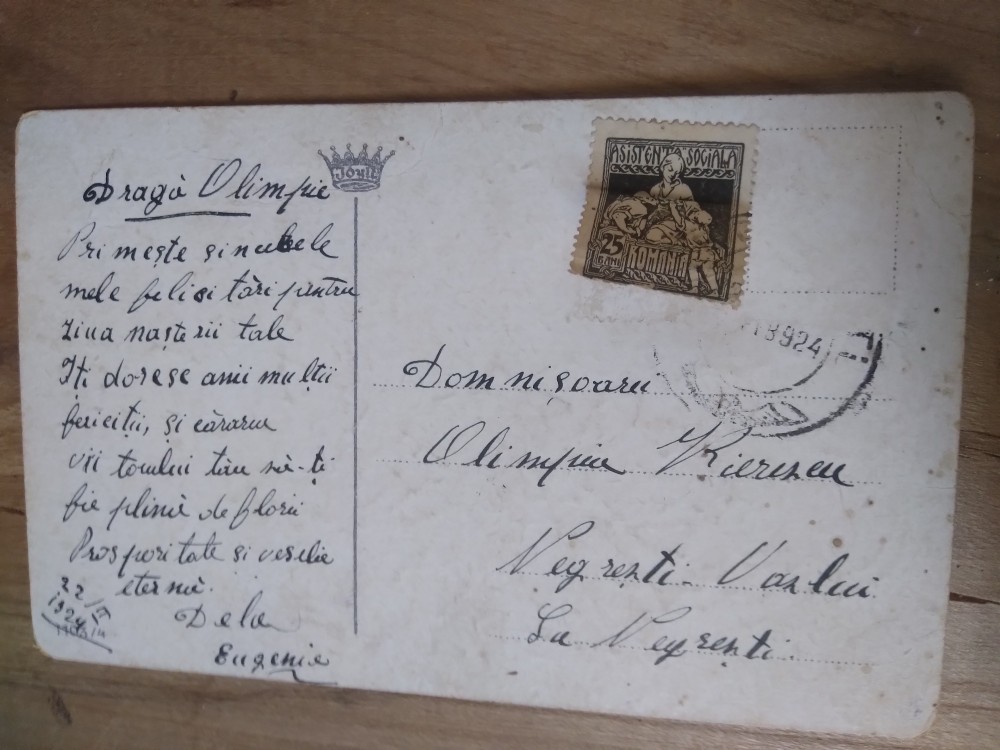 Dragă Olimpie
Primește și nubele
mele felisitări pantru
ziua nașterii tale
Iți doresc anii mulții
fericiții, și cărarea
viitorului tău să-ți
fie plină de florii
Prosparitate și veselie
eternă.
Dela
Eugenie
22/II
1924
ASISTENȚA SOCIALA
25
BANI
ROMANIA
924
Domnișoaru
Olimpia
Negrești. Vaslui
La Negrești.